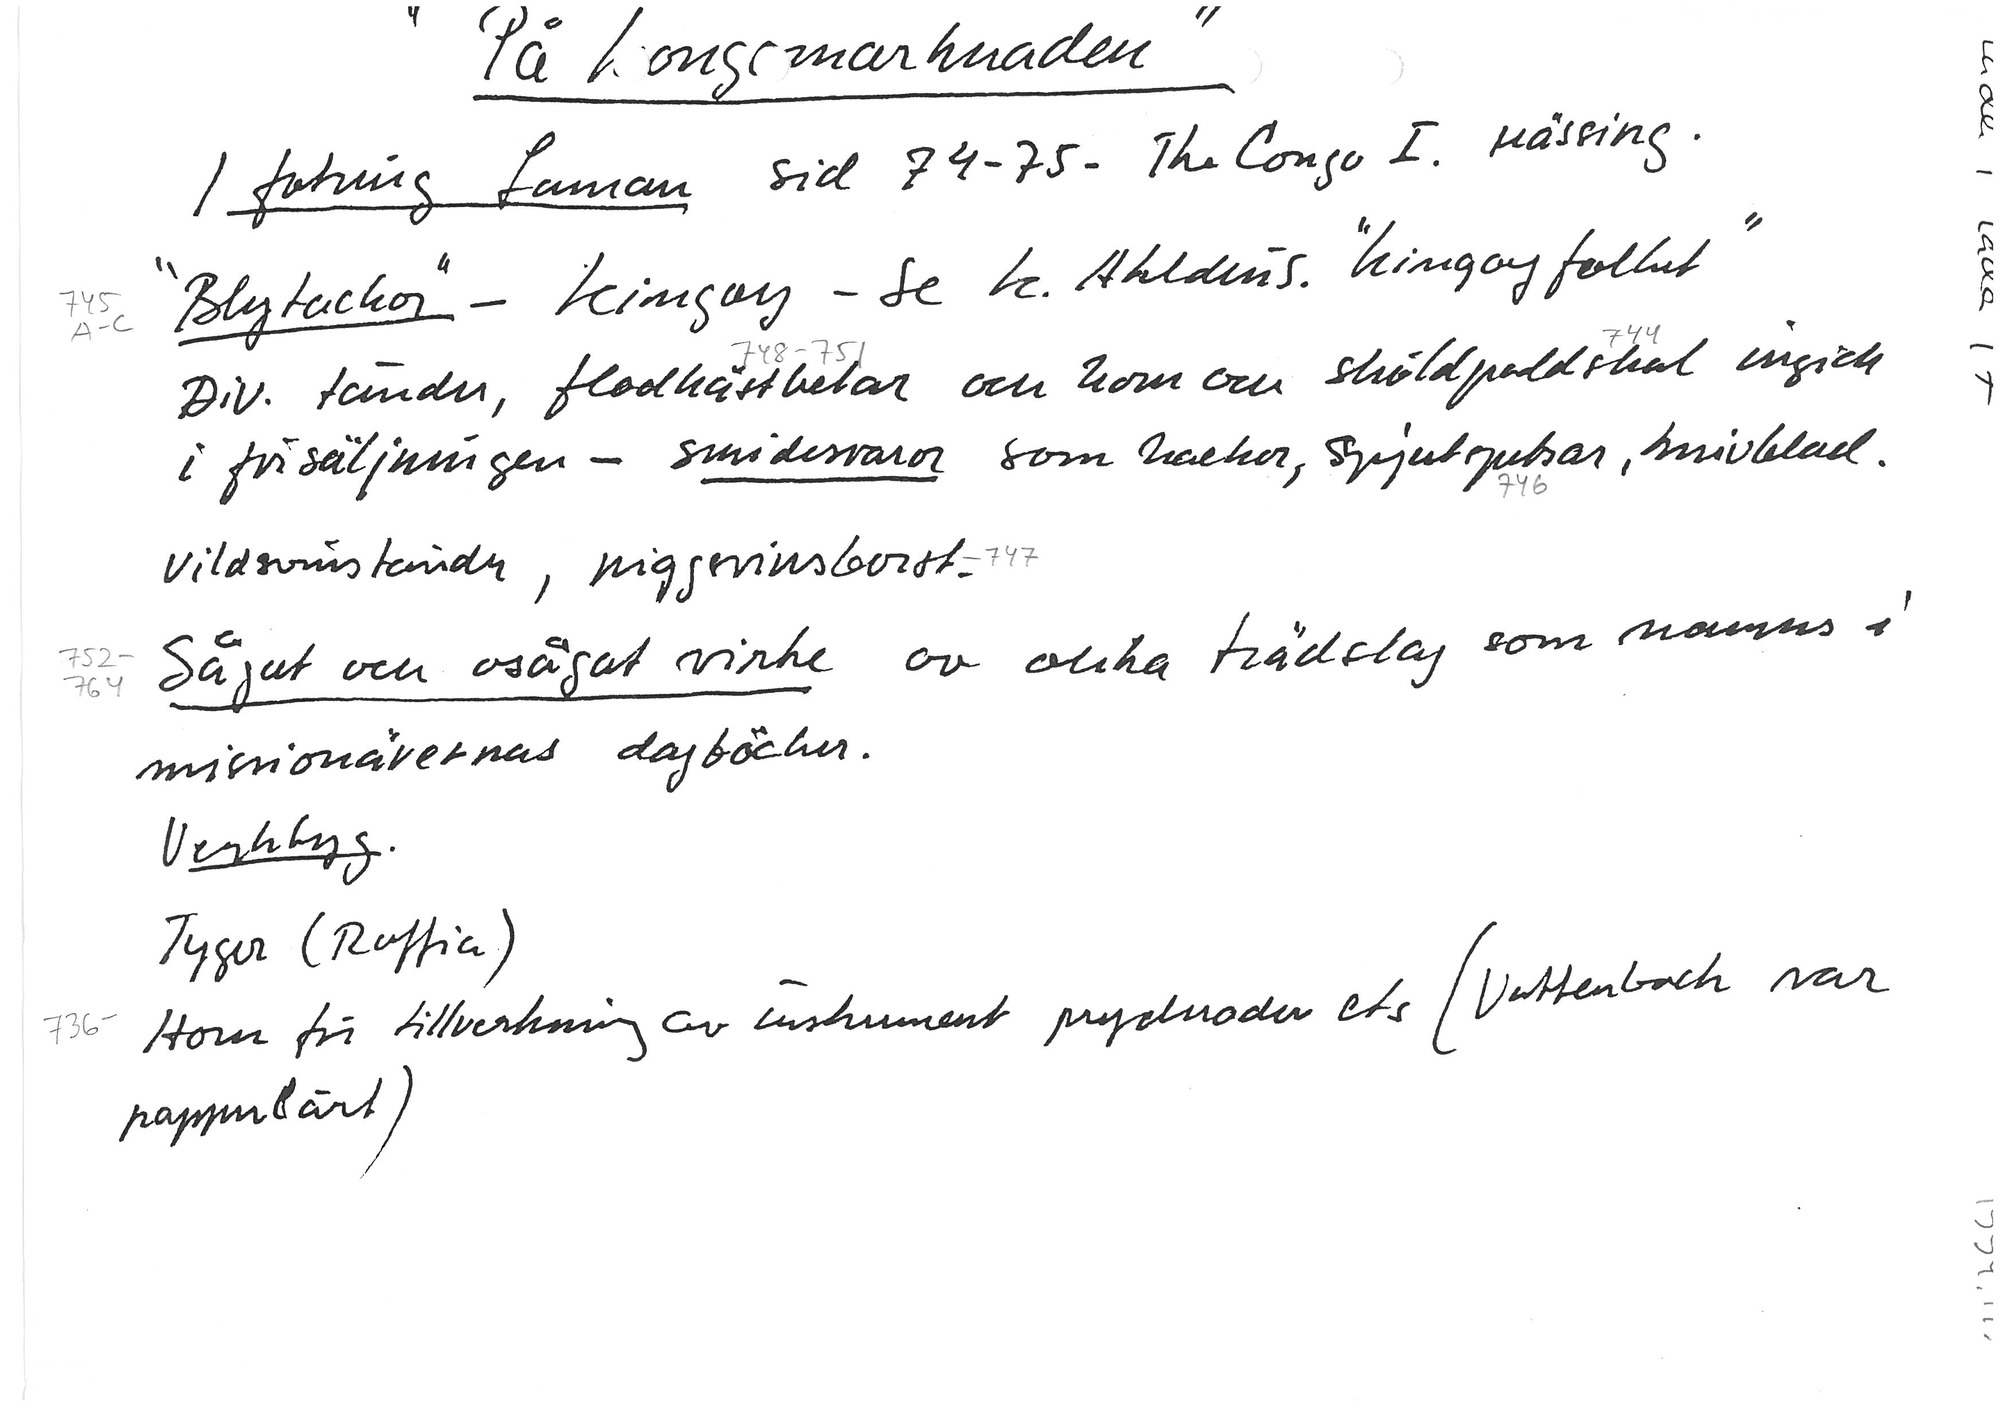 "På Kongomarknaden"
I fotning Laman sid 74-75- The Congo I. Mässing.
745 A-C "Blytackor" – Kingoy – Se K. Ahldéns. "Kingoyfolket"
748-751 744
Div. tänder, flodhästbetar och horn och sköldpaddskal ingick
i försäljningen – smidesvaror som hackor, spjutspetsar, knivblad.
746
vildsvinständer, piggsvinsborst. – 747
752-764 Sågat och osågat virke av olika trädslag som namns i
missionärernas dagböcker.
Verktyg.
Tyger (Raffia)
736- Horn för tillverkning av instrument prydnader ets (Vattenbock var
populärt)